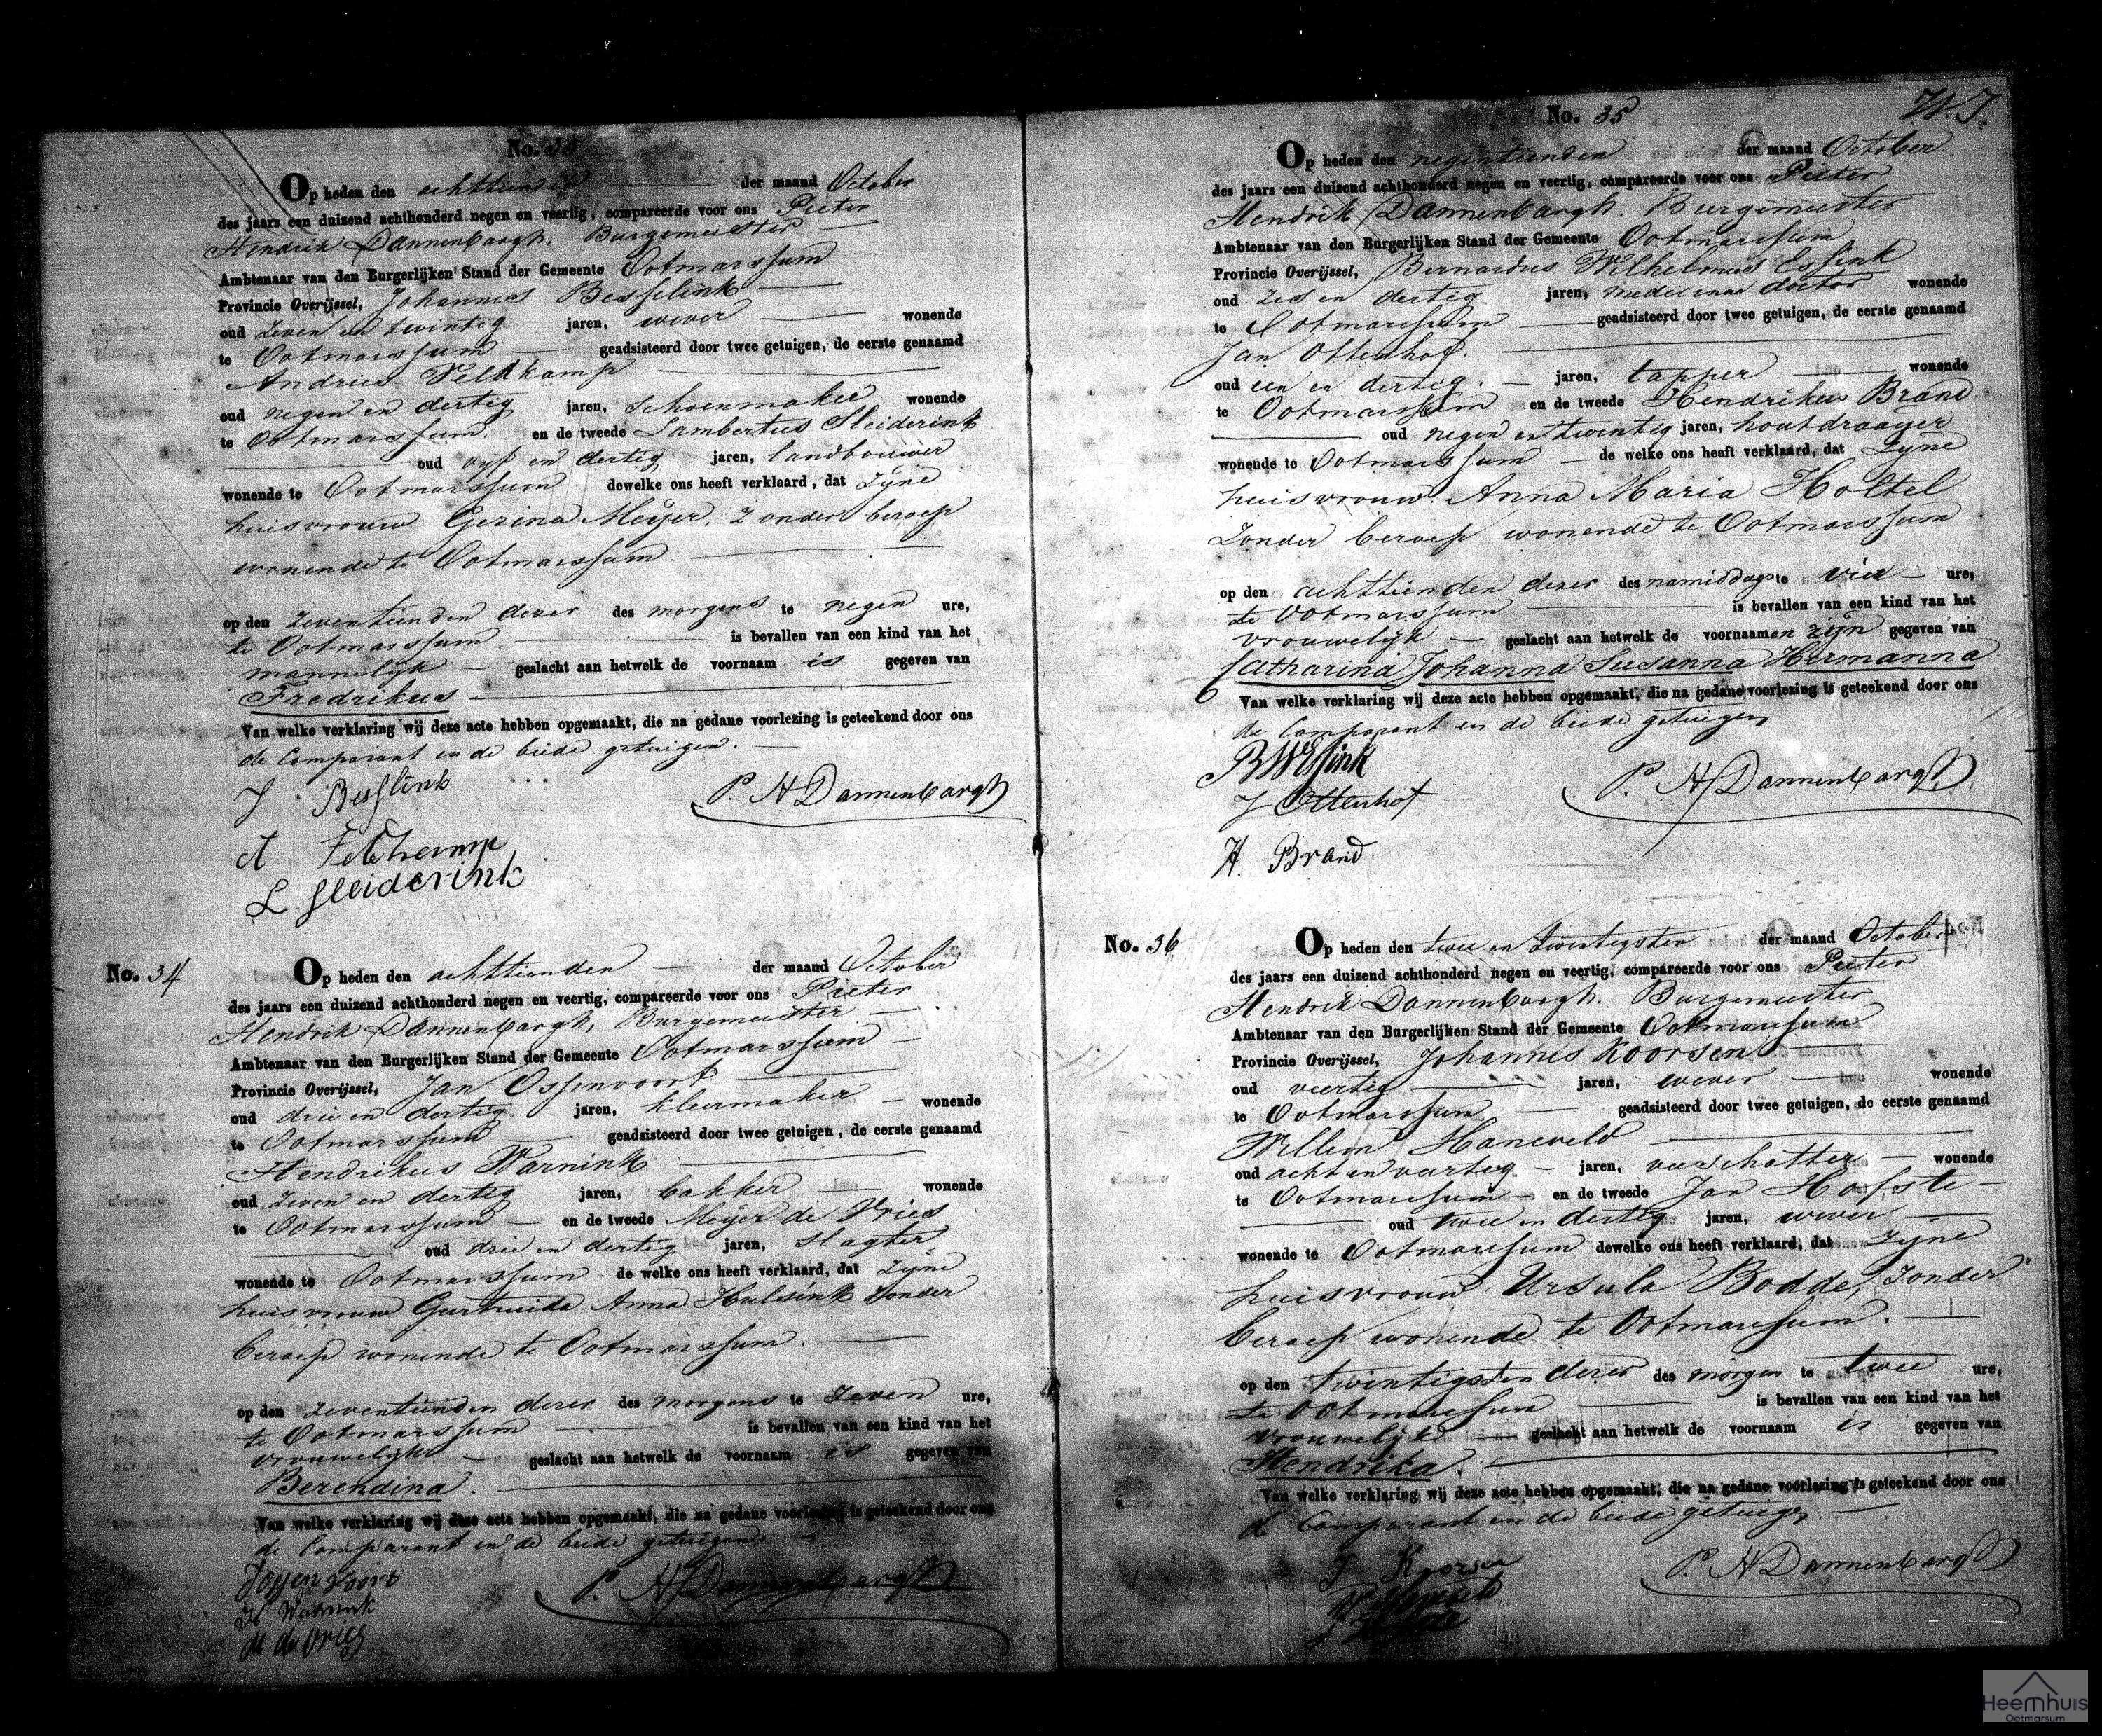 No. 33
Op heden den achttienden der maand October
des jaars een duizend achthonderd negen en veertig, compareerde voor ons Pieter
Hendrik Dannenbargh, Burgemeester
Ambtenaar van den Burgerlijken Stand der Gemeente Ootmarssum
Provincie Overijssel, Johannes Besselink
oud zeven en twintig jaren, wever wonende
te Ootmarssum geadsisteerd door twee getuigen, de eerste genaamd
Andries Veldkamp
oud negen en dertig jaren, schoenmaker wonende
te Ootmarssum en de tweede Lambertus Sleiderink
oud vijf en dertig jaren, landbouwer
wonende te Ootmarssum dewelke ons heeft verklaard, dat zijne
huisvrouw Gezina Meijer, zonder beroep
wonende te Ootmarssum
op den zeventienden dezer des morgens te negen ure,
te Ootmarssum is bevallen van een kind van het
mannelijk geslacht aan hetwelk de voornaam is gegeven van
Fredrikus
Van welke verklaring wij deze acte hebben opgemaakt, die na gedane voorlezing is geteekend door ons
de Comparant en de beide getuigen.
J Besselink
P. H Dannenbargh
A Feldkamp
L Sleiderink
No. 34
Op heden den achttienden der maand October
des jaars een duizend achthonderd negen en veertig, compareerde voor ons Pieter
Hendrik Dannenbargh, Burgemeester
Ambtenaar van den Burgerlijken Stand der Gemeente Ootmarssum
Provincie Overijssel, Jan Ossenvoort
oud drie en dertig jaren, kleermaker wonende
te Ootmarssum geadsisteerd door twee getuigen, de eerste genaamd
Hendrikus Warnink
oud zeven en dertig jaren, bakker wonende
te Ootmarssum en de tweede Meijer de Vries
oud drie en dertig jaren, slagter
wonende te Ootmarssum de welke ons heeft verklaard, dat zijne
huisvrouw Geertruida Anna Hulsink zonder
beroep wonende te Ootmarssum.
op den zeventienden dezer des morgens te zeven ure,
te Ootmarssum is bevallen van een kind van het
vrouwelijk geslacht aan hetwelk de voornaam is gegeven van
Berendina.
Van welke verklaring wij deze acte hebben opgemaakt, die na gedane voorlezing is geteekend door ons
de Comparant en de beide getuigen.
J Ossenvoort
P. H Dannenbargh
H Warnink
M de Vries
No. 35
Op heden den negentienden der maand October
des jaars een duizend achthonderd negen en veertig, compareerde voor ons Pieter
Hendrik Dannenbargh. Burgemeester
Ambtenaar van den Burgerlijken Stand der Gemeente Ootmarssum
Provincie Overijssel, Bernardus Wilhelmus Essink
oud zes en dertig jaren, medicinae doctor wonende
te Ootmarssum geadsisteerd door twee getuigen, de eerste genaamd
Jan Ottenhof.
oud een en dertig. jaren, tapper wonende
te Ootmarssum en de tweede Hendrikus Brand
oud negen en twintig jaren, houtdraayer
wonende te Ootmarssum de welke ons heeft verklaard, dat zijne
huisvrouw. Anna Maria Holtel
zonder beroep wonende te Ootmarssum
op den achttienden dezer des namiddags te vier ure,
te Ootmarssum is bevallen van een kind van het
vrouwelijk geslacht aan hetwelk de voornaamen zijn gegeven van
Catharina Johanna Susanna Hermanna
Van welke verklaring wij deze acte hebben opgemaakt, die na gedane voorlezing is geteekend door ons
de Comparant en de beide getuigen
BWEssink
P. H Dannenbargh
J Ottenhof
H. Brand
No. 36
Op heden den twee en twintigsten der maand October
des jaars een duizend achthonderd negen en veertig, compareerde voor ons Pieter
Hendrik Dannenbargh. Burgemeester
Ambtenaar van den Burgerlijken Stand der Gemeente Ootmarssum
Provincie Overijssel, Johannes Koorsen
oud veertig jaren, wever wonende
te Ootmarssum geadsisteerd door twee getuigen, de eerste genaamd
Willem Haneveld
oud acht en veertig jaren, veeschatter wonende
te Ootmarssum en de tweede Jan Hofste
oud twee en dertig jaren, wever
wonende te Ootmarssum dewelke ons heeft verklaard, dat zijne
huisvrouw Ursula Bodde, zonder
beroep wonende te Ootmarssum.
op den twintigsten dezer des morgen te twee ure,
te Ootmarssum is bevallen van een kind van het
vrouwelijk geslacht aan hetwelk de voornaam is gegeven van
Hendrika.
Van welke verklaring wij deze acte hebben opgemaakt, die na gedane voorlezing is geteekend door ons
de Comparant en de beide getuigen
J Koorsen
P. H Dannenbargh
Heemhuis
Ootmarsum